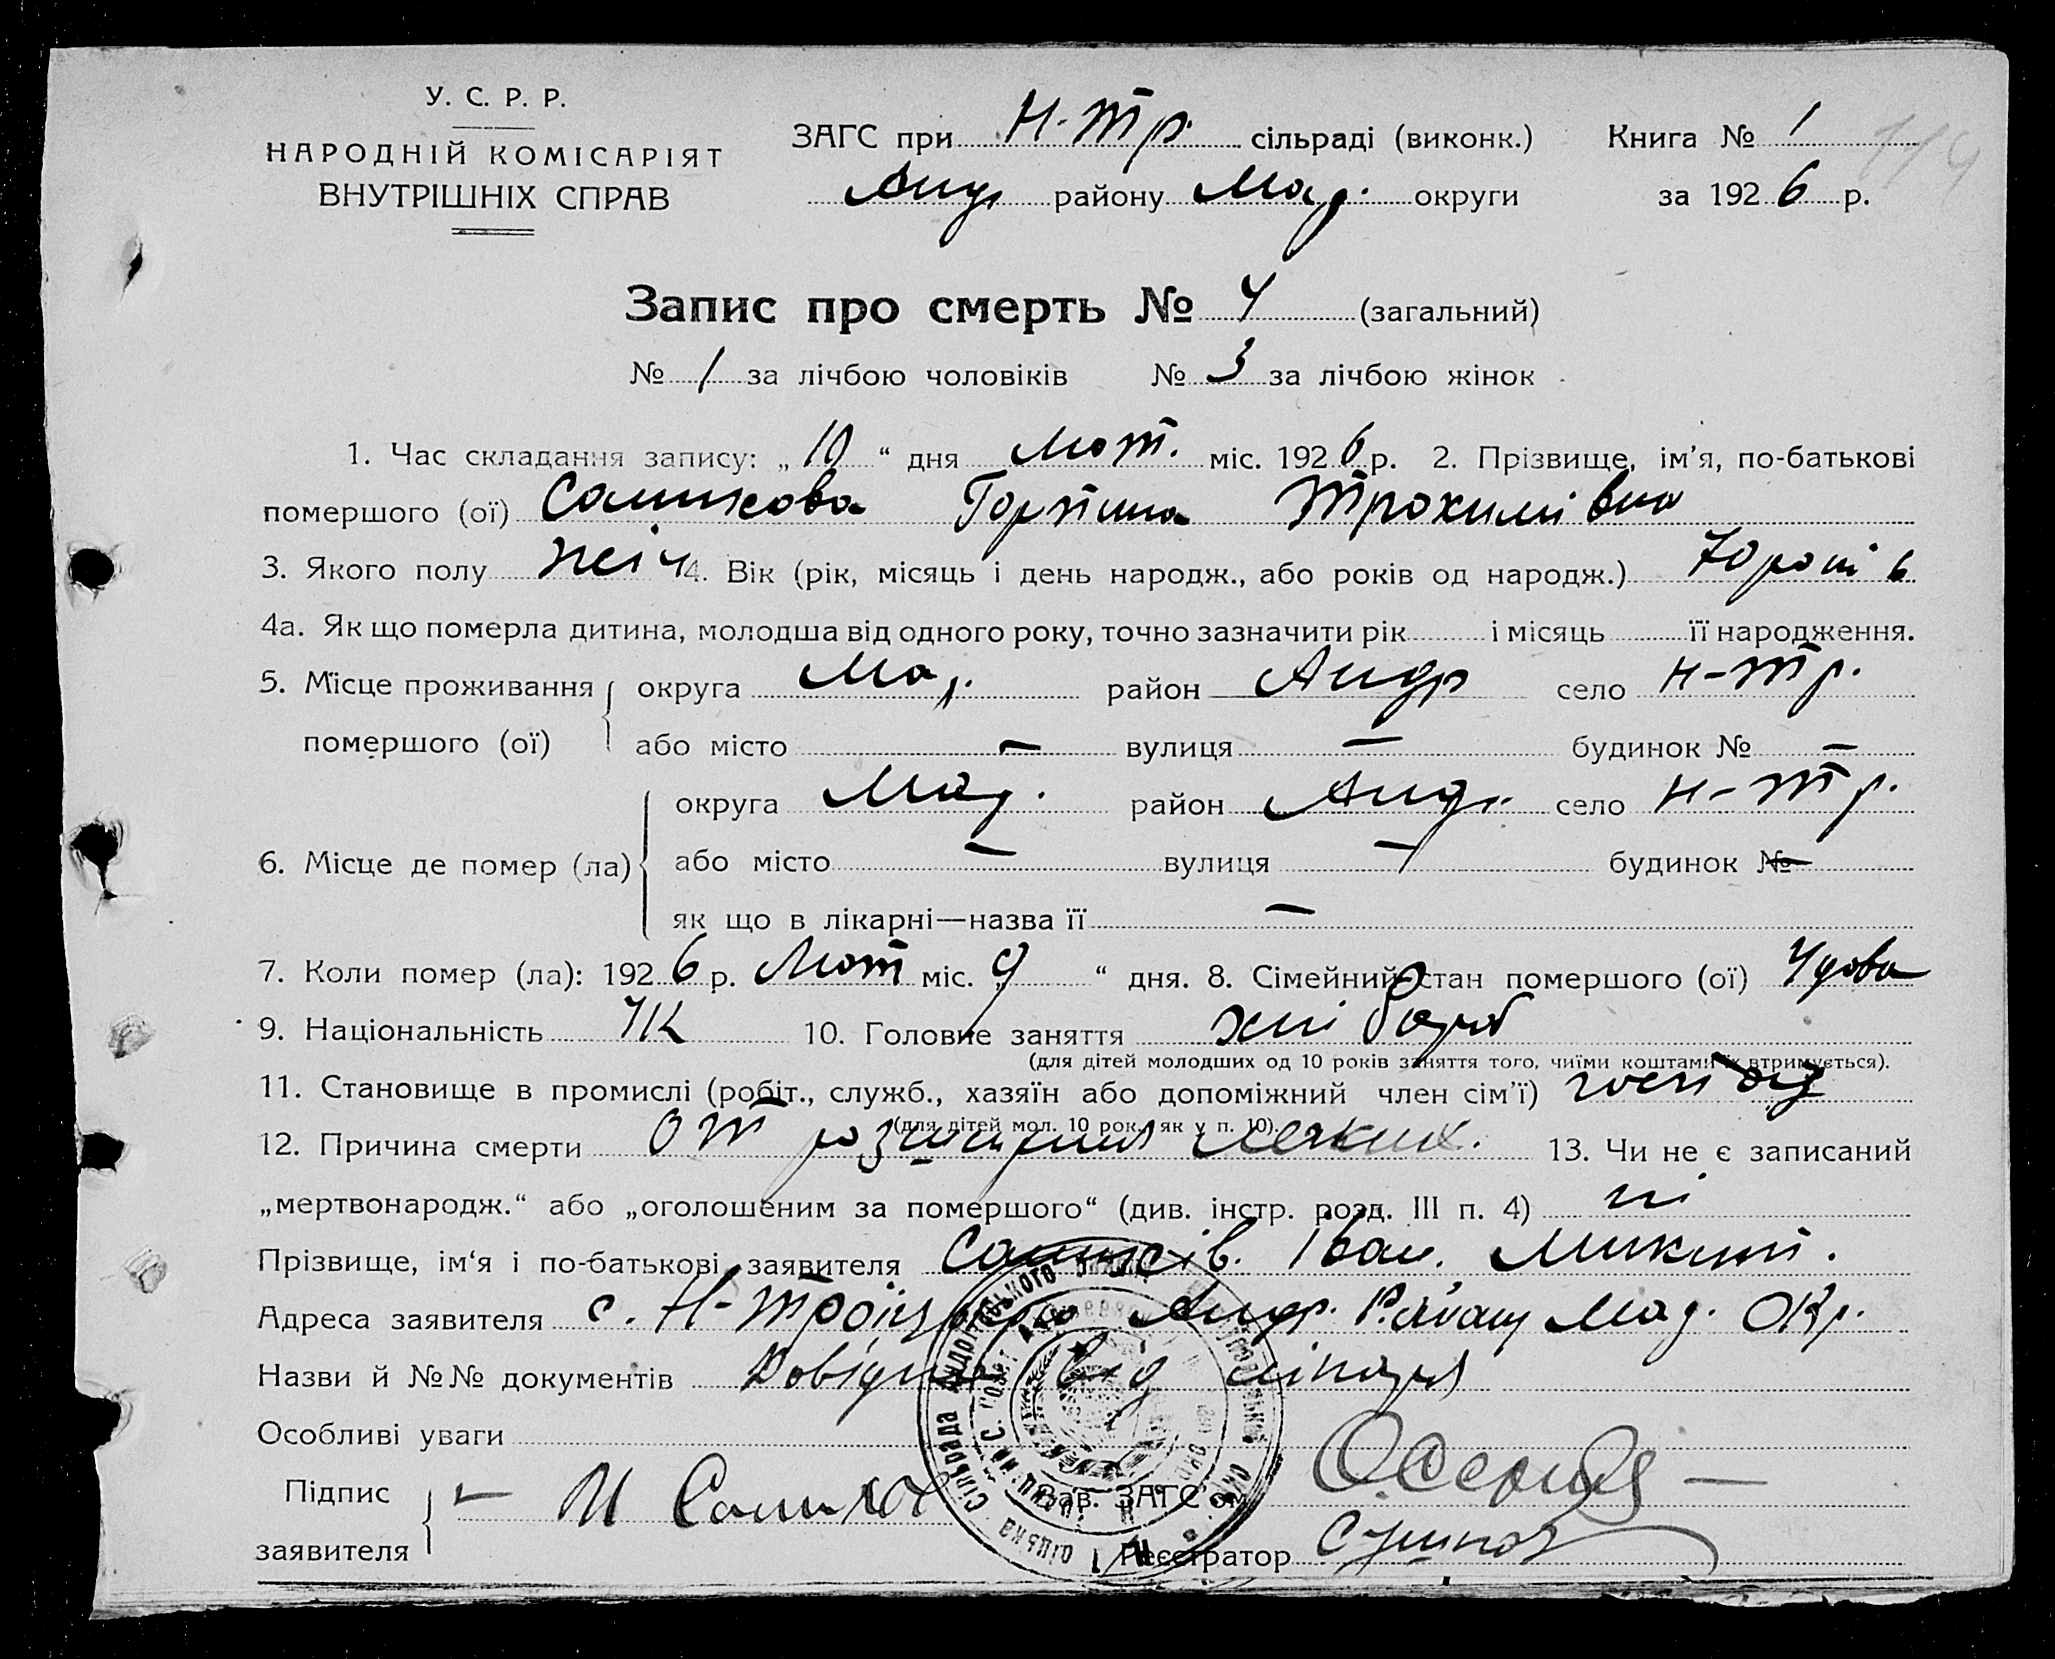 У. С. Р. Р.
НАРОДНІЙ КОМІСАРІЯТ
ВНУТРІШНІХ СПРАВ
ЗАГС при Н-Тр. сільраді (виконк.) Книга № 1
Андр району Мар. округи за 1926 р.
Запис про смерть № 4 (загальний)
№ 1 за лічбою чоловіків № 3 за лічбою жінок
1. Час складання запису: „10“ дня Лют. міс. 1926 р. 2. Прізвище, ім'я, по-батькові
помершого (ої) Горпина Трохимівна
3. Якого полу жіч 4. Вік (рік, місяць і день народж., або років од народж.) 70 років
4а. Як що померла дитина, молодша від одного року, точно зазначити рік і місяць її народження.
5. Місце проживання округа Мар. район Андр село Н-Тр.
помершого (ої) або місто — вулиця — будинок № —
округа Мар. район Андр. село Н-Тр.
6. Місце де помер (ла) або місто — вулиця — будинок № —
як що в лікарні—назва її —
7. Коли помер (ла): 1926 р. Лют міс. „9“ дня. 8. Сімейний стан помершого (ої) Удова
9. Національність УК 10. Головне заняття хлібороб
(для дітей молодших од 10 років заняття того, чиїми коштами їх втримується).
11. Становище в промислі (робіт., служб., хазяїн або допоміжний член сім'ї)
(для дітей мол. 10 рок. як у п. 10).
12. Причина смерти от легких. 13. Чи не є записаний
„мертвонародж.“ або „оголошеним за помершого“ (див. інстр. розд. III п. 4) ні
Прізвище, ім'я і по-батькові заявителя Іван. Микит.
Адреса заявителя с. Н-Троїцьке Андр. Району Мар. Окр.
Назви й №№ документів Довідка від лікаря
Особливі уваги
Підпис
заявителя
Зав. ЗАГС'ом
Реєстратор